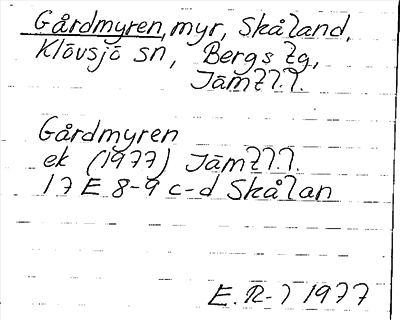 Gårdmyren, myr, Skåland,
Klövsjö sn, Bergs tg,
Jämtl.l.
Gårdmyren
ek (1977) Jämtl.l.
17 E 8-9 c-d Skålan
E. R-l 1977